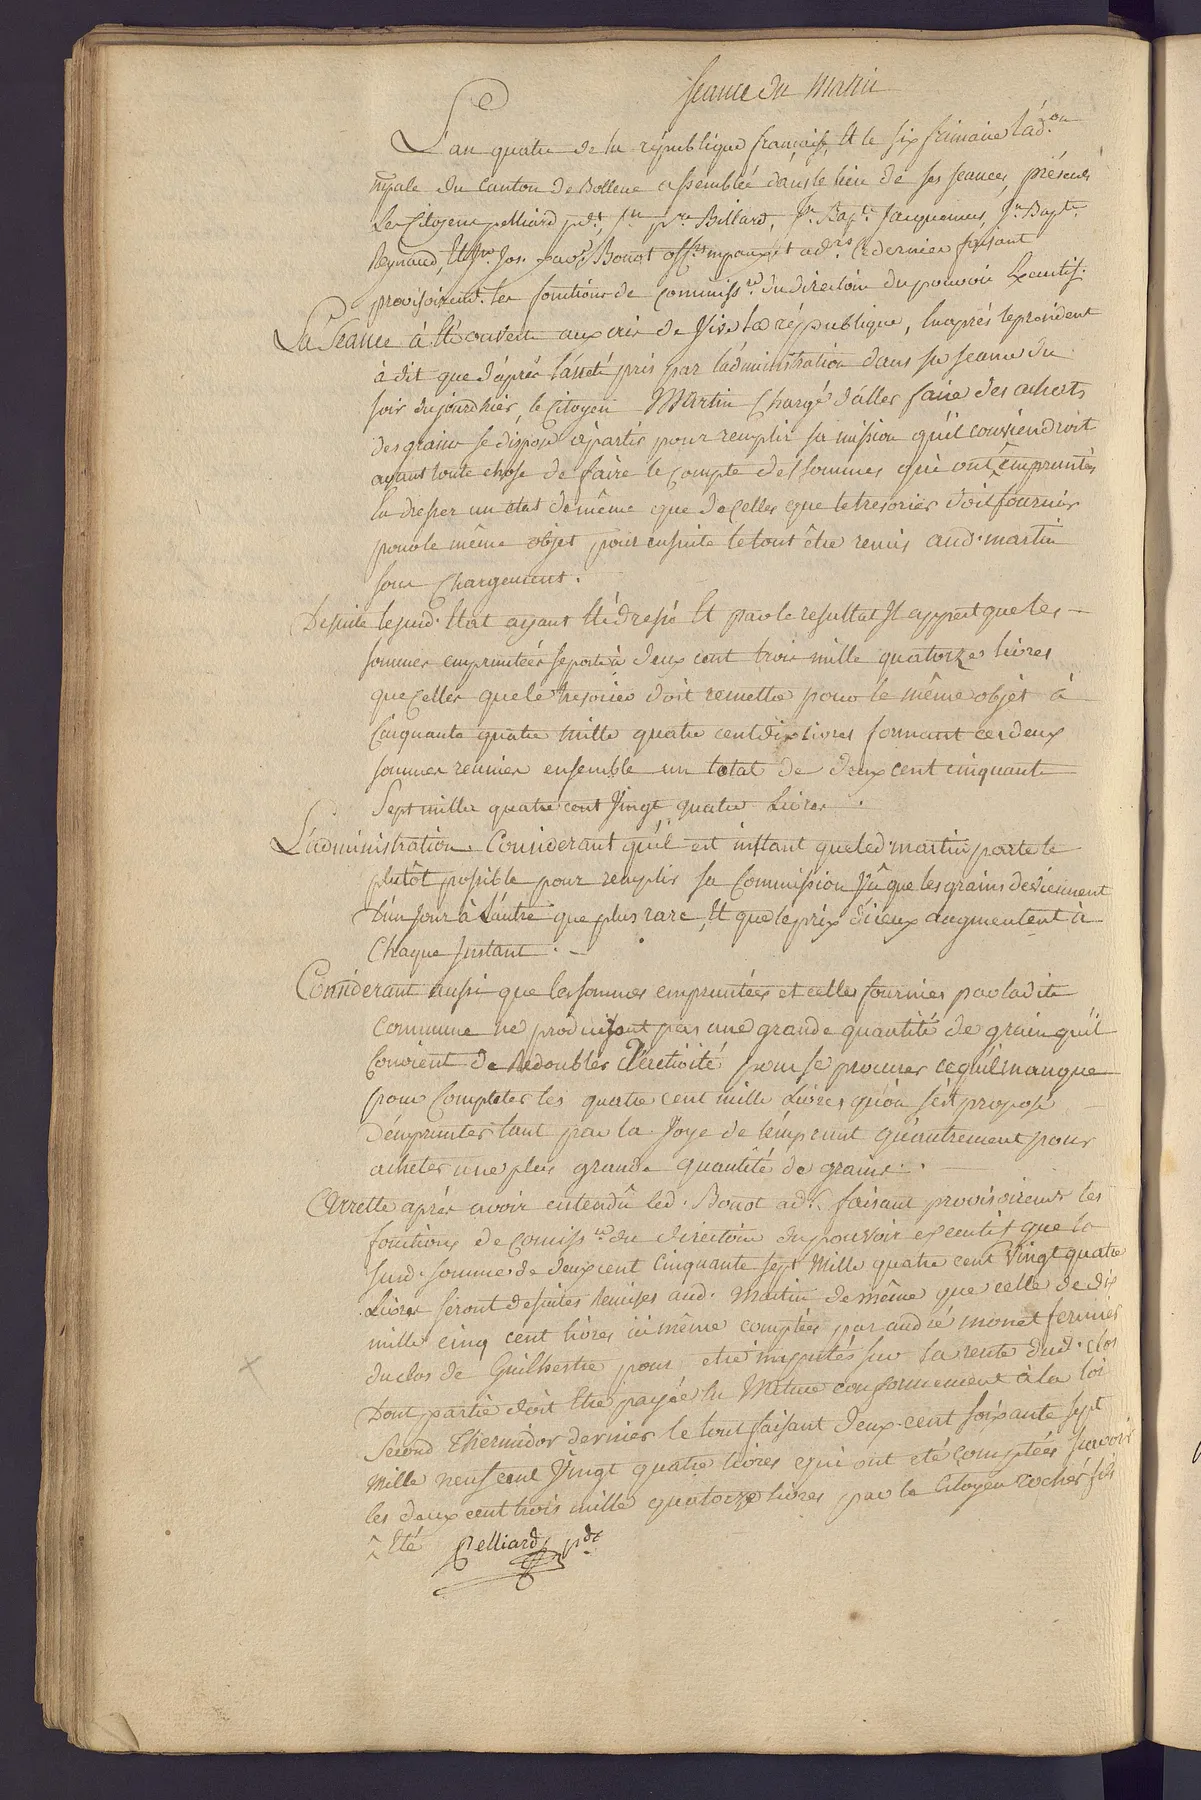 Seance du Matin
L'an quatre de la république française, Et le six frimaire l'ad.on
mpale du Canton de Bollene assemblée dans le lieu de ses seances, présents
Les Citoyens pelliard pdt, jn pre Billard, Jn Bapte Jacquemus, Jn Bapte
Reynaud, Et Bonot offrs mpaux et adrs Ce dernier faisant
provisoiremt. les fonctions de Commissre du directoire du pouvoir Executif.
La Seance à Eté ouverte aux cris de Vive la république, Enaprés le president
à dit que d'aprés l'arreté pris par l'administration dans sa seance du
soir dujourdhier, le Citoyen Martin Chargé d'aller faire des achats
des grains se dispose apartir pour remplir sa mission qu'il conviendroit
avant toute chose de faire le Compte des Sommes qui ont ^ empruntés
En dresser un état de même que de Celles que le tresorier doit fournir
pour le même objet pour ensuite le tout être remis aud. martin
sous Chargement.
De suite le susd. Etat ayant Eté dressé Et par le resultat Il appert que les
sommes empruntées se porte à deux cent trois mille quatorze livres
que Celles que le tresorier doit remettre pour le même objet à
Cinquante quatre mille quatre cent dix livres formant ces deux
sommes reunies ensemble un total de deux cent cinquante
Sept mille quatre cent Vingt quatre Livres.
L'administration Considerant qu'il est instant que led. martin parte le
plutôt possible pour remplir sa Commission Vû que les grains deviennent
d'un Jour à L'autre que plus rare, Et que le prix d'iceux augmentent à
Chaque Instant.
Considerant aussi que les sommes empruntées et celles fournies par ladite
Commune ne produisant pas une grande quantité de grain qu'il
Convient de Redoubler d'activité pour se procurer ce qu'il manque
pour Completer les quatre cent mille Livres qu'on s'est proposé
d'emprunter tant par la Voye de l'emprunt qu'autrement pour
acheter une plus grande quantité de grains.
Arrette aprés avoir entendû led. Bonot adr. faisant provisoiremt les
fonctions de Comissre du directoire du pouvoir executif que la
susd. somme de deux cent Cinquante sept Mille quatre cent Vingt quatre
Livres seront desuites Remises aud. Martin de même que celle de dix
mille cinq cent livres ici même comptées par andré monet fermier
du clos de Guilhestre pour etre imputés sur la rente dud. clos
Dont partie doit Etre payée En Nature conformement à la loi
Second Thermidor dernier le tout faisant deux cent soixante sept
Mille neuf cent Vingt quatre livres qui ont eté comptées savoir
les deux cent trois mille quatorze livres par le Citoyen rochér fils
^ Eté Pelliard pdt